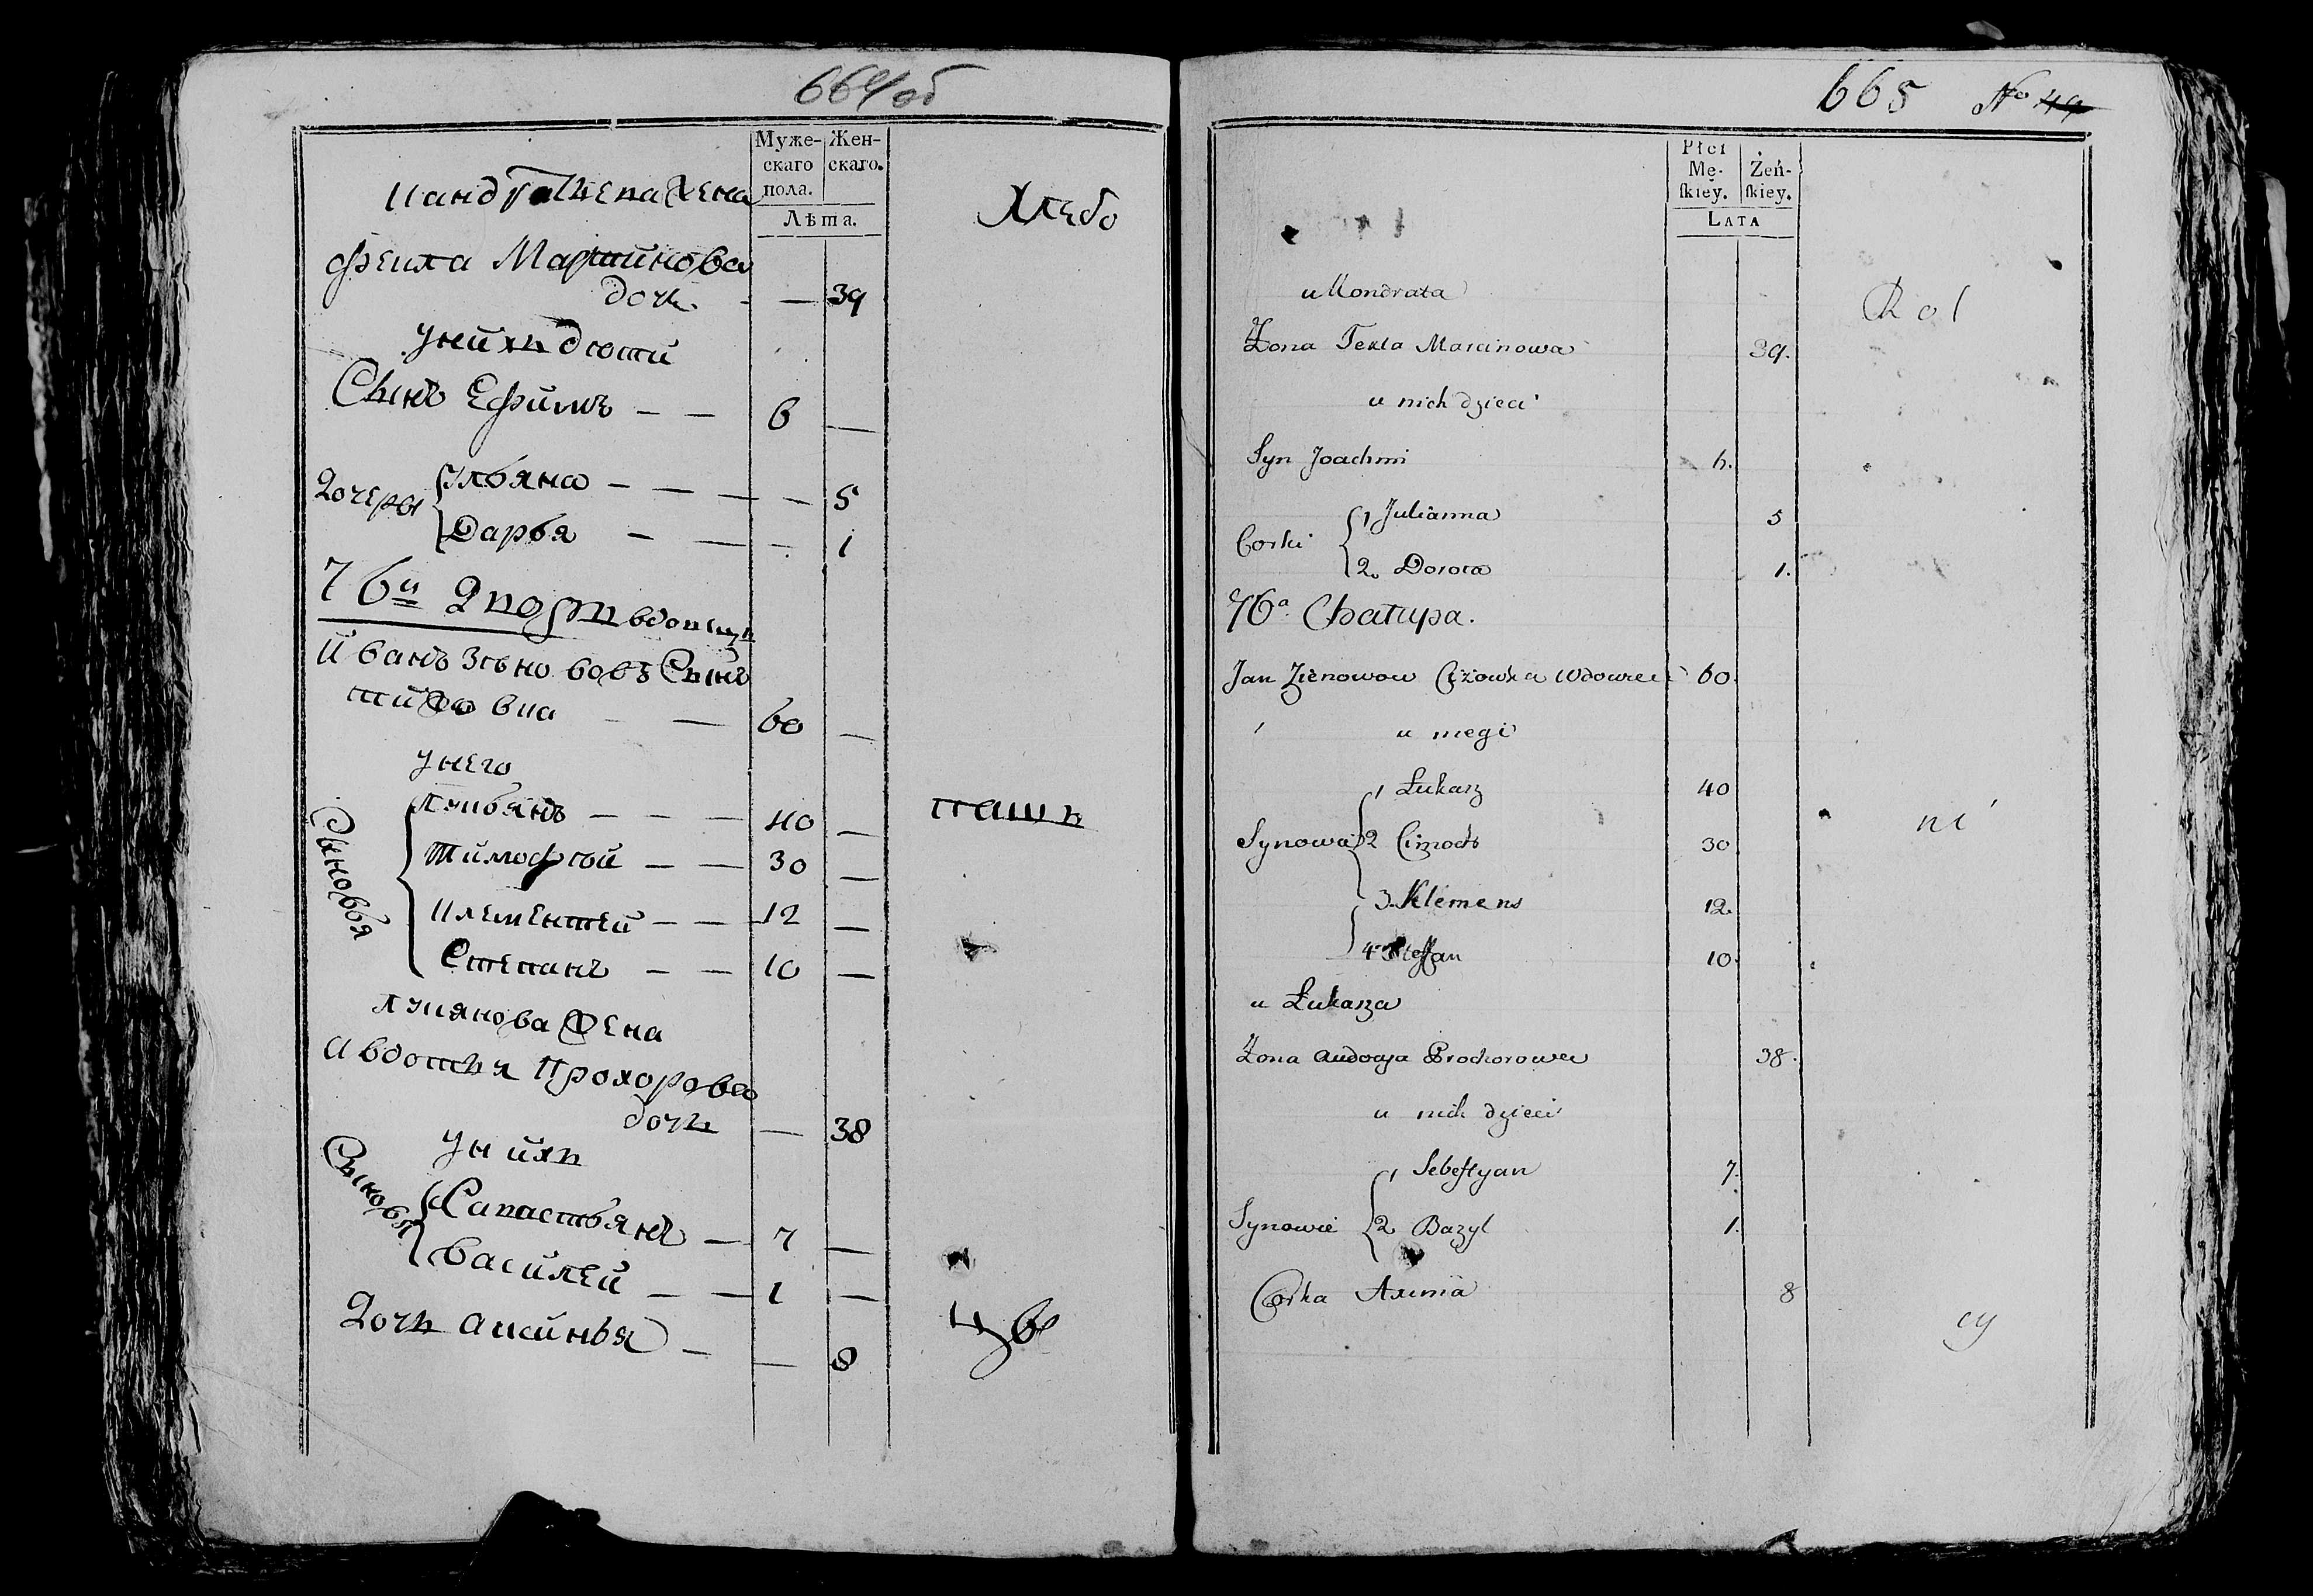 664 об
Муже-
скаго
пола.
Жен-
скаго.
Лѣта.
Кандратьева жена
Фекла Мартинова
дочь - — 39
у них дети
Сынъ Ефимъ — — 6 —
Дочеры
Ульяна — — — — 5
Дарья — — - 1
76й Дворъ вдовецъ
Иванъ Зѣнововъ Сынъ
60 —
у него
Сыновья
Лукьянъ — — — 40 —
Тимофѣй — — 30 —
Клементей — — 12 —
Степанъ — — 10 —
Лукянова жена
Авдотья Прохорова
дочь — 38
у них
Сыновья
Сапастьянъ — 7 —
Василей — — 1 —
Дочь Аксинья — — 8
Хлебо
паш
цы
665 No 49
Płci
Mę-
ſkiey.
Żeń-
ſkiey.
LATA
u Kondrata
Żona Tekla Marcinowa 39.
u nich dzieci
Syn Joachim 6.
Corki
1 Julianna 5
2. Dorota 1.
76a Chatupa.
Jan Zienowow Czżowka Wdowiec 60.
u niego
Synowie
1 Łukasz 40
2 Cimoch 30
3. Klemens 12.
4 Steffan 10.
u Łukasza
Żona Audocya Prochorowa 38.
u nich dzieci
Synowie
1 Sebeſtyan 7.
2 Bazyl 1.
Corka Axinia 8
Rol
ni
cy